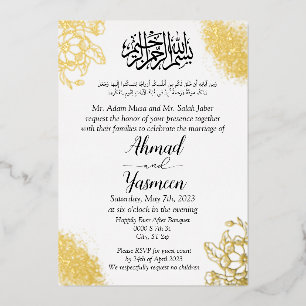 بسم الله الرحمن الرحيم
وَمِنْ آيَاتِهِ أَنْ خَلَقَ لَكُم مِّنْ أَنفُسِكُمْ أَزْوَاجًا لِّتَسْكُنُوا إِلَيْهَا وَجَعَلَ
بَيْنَكُم مَّوَدَّةً وَرَحْمَةً إِنَّ فِي ذَٰلِكَ لَآيَاتٍ لِّقَوْمٍ يَتَفَكَّرُونَ
Mr. Adam Musa and Mr. Salah Jaber
request the honor of your presence together
with their families to celebrate the marriage of
Ahmad
and
Yasmeen
Saturday, May 7th, 2023
at six o'clock in the evening
Happily Ever After Banquet
0000 S 7th St
City, ST 12345
Please RSVP for guest count
by 14th of April 2023
We respectfully request no children